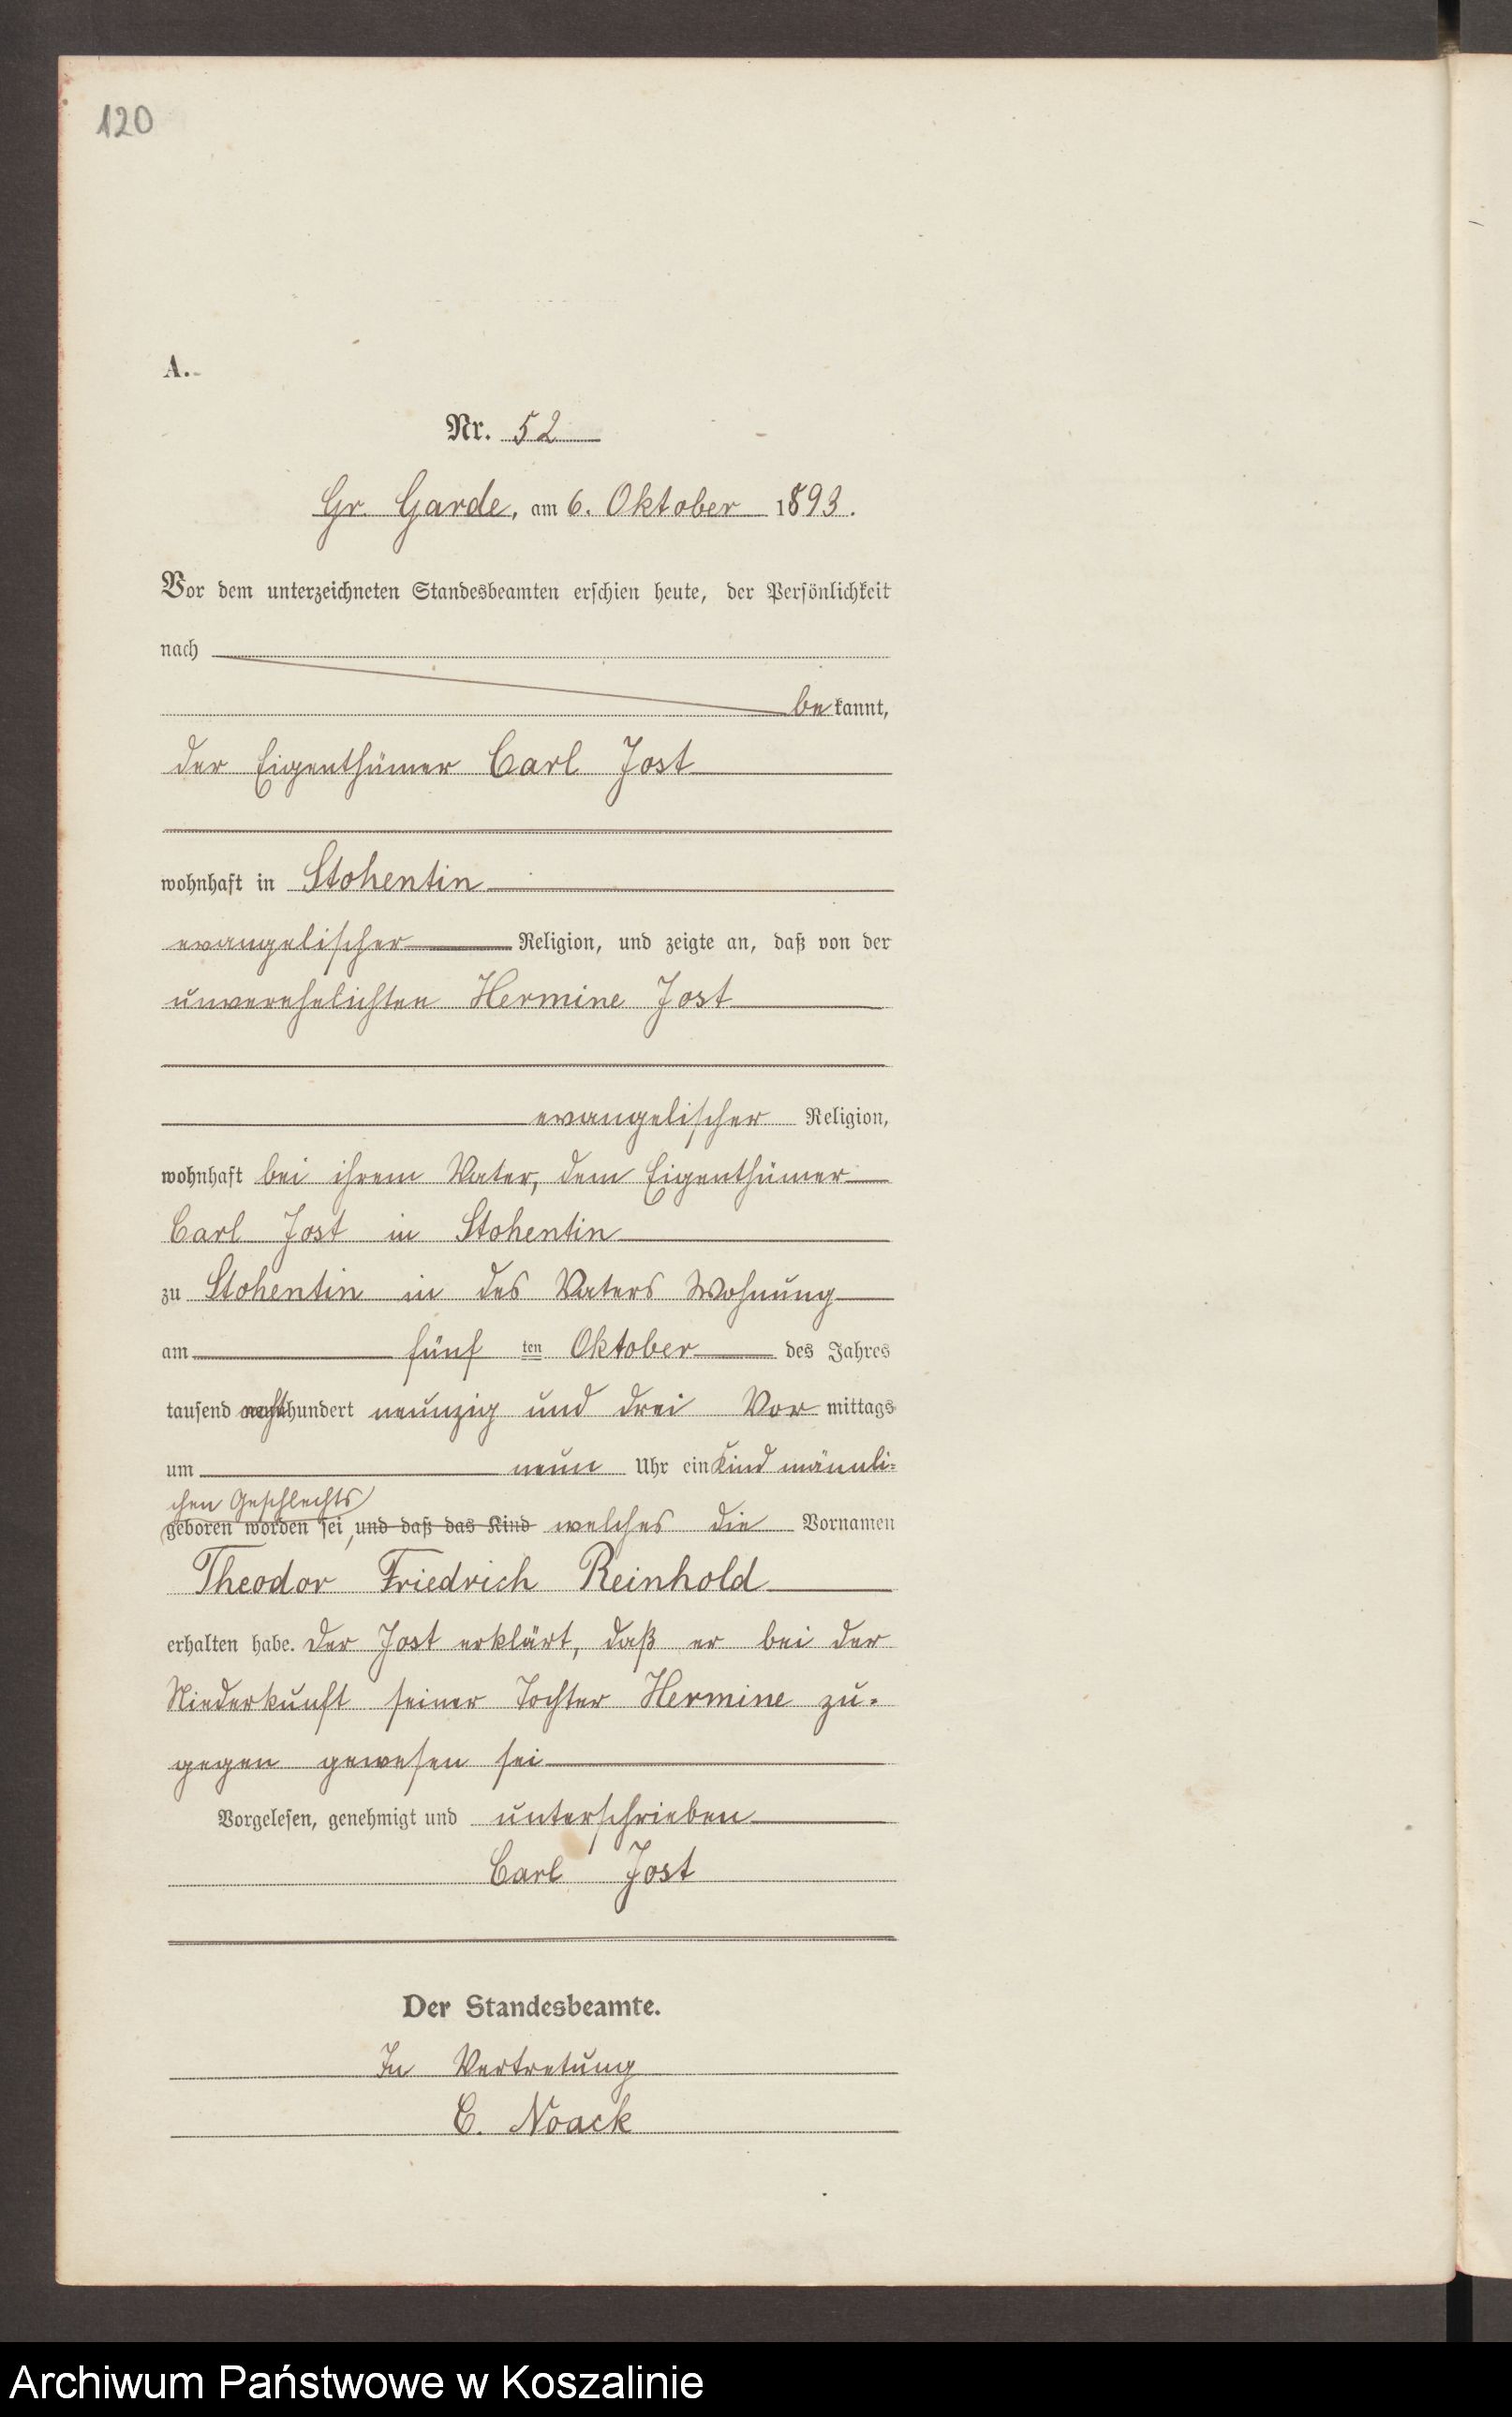 120
A.
Nr. 52
Gr. Garde, am 6. Oktober 1893.
Vor dem unterzeichneten Standesbeamten erschien heute, der Persönlichkeit
nach
be kannt,
der Eigenthümer Carl Jost
wohnhaft in Stohentin
evangelischer Religion, und zeigte an, daß von der
unverehelichten Hermine Jost
evangelischer Religion,
wohnhaft bei ihrem Vater, dem Eigenthümer
Carl Jost in Stohentin
zu Stohentin in des Vaters Wohnung
am fünf ten Oktober des Jahres
tausend achthundert neunzig und drei Vor mittags
um neun Uhr ein Kind männli=
chen Geschlechts
geboren worden sei, und daß das Kind welches die Vornamen
Theodor Friedrich Reinhold
erhalten habe. Der Jost erklärt, daß er bei der
Niederkunft seiner Tochter Hermine zu=
gegen gewesen sei
Vorgelesen, genehmigt und unterschrieben
Carl Jost
Der Standesbeamte.
In Vertretung
C. Noack
Archiwum Państwowe w Koszalinie